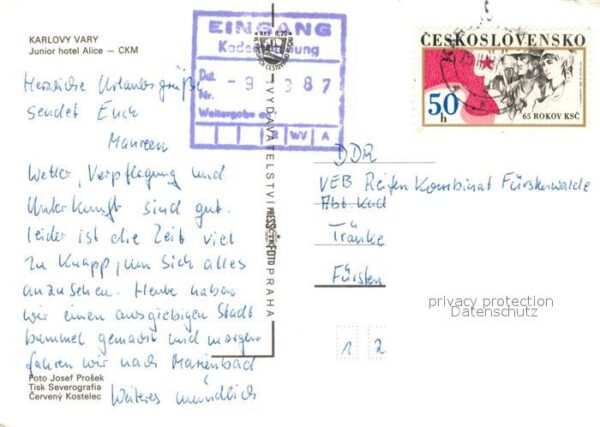 KARLOVY VARY
Junior hotel Alice — CKM
Herzliche Urlaubsgrüße
sendet Euch
Maureen
Wetter, Verpflegung und
Unterkunft sind gut.
leider ist die Zeit viel
zu knapp, um sich alles
anzusehen. Heute haben
wir einen ausgiebigen Stadt
bummel gemacht und morgen
fahren wir nach Marienbad
Weiteres mündlich
Foto Josef Prošek
Tisk Severografia
Červený Kostelec
EINGANG
Dat. - 9 - 3 87
Nr.
Weitergabe an
WV A
VYDAVATELSTVÍ PRESSFOTO PRAHA
ČESKOSLOVENSKO
50 h
65 ROKOV KSČ
DDR
VEB Reifen Kombinat Fürstenwalde
Abt Kad
Tränke
Fürsten
privacy protection
Datenschutz
1 2